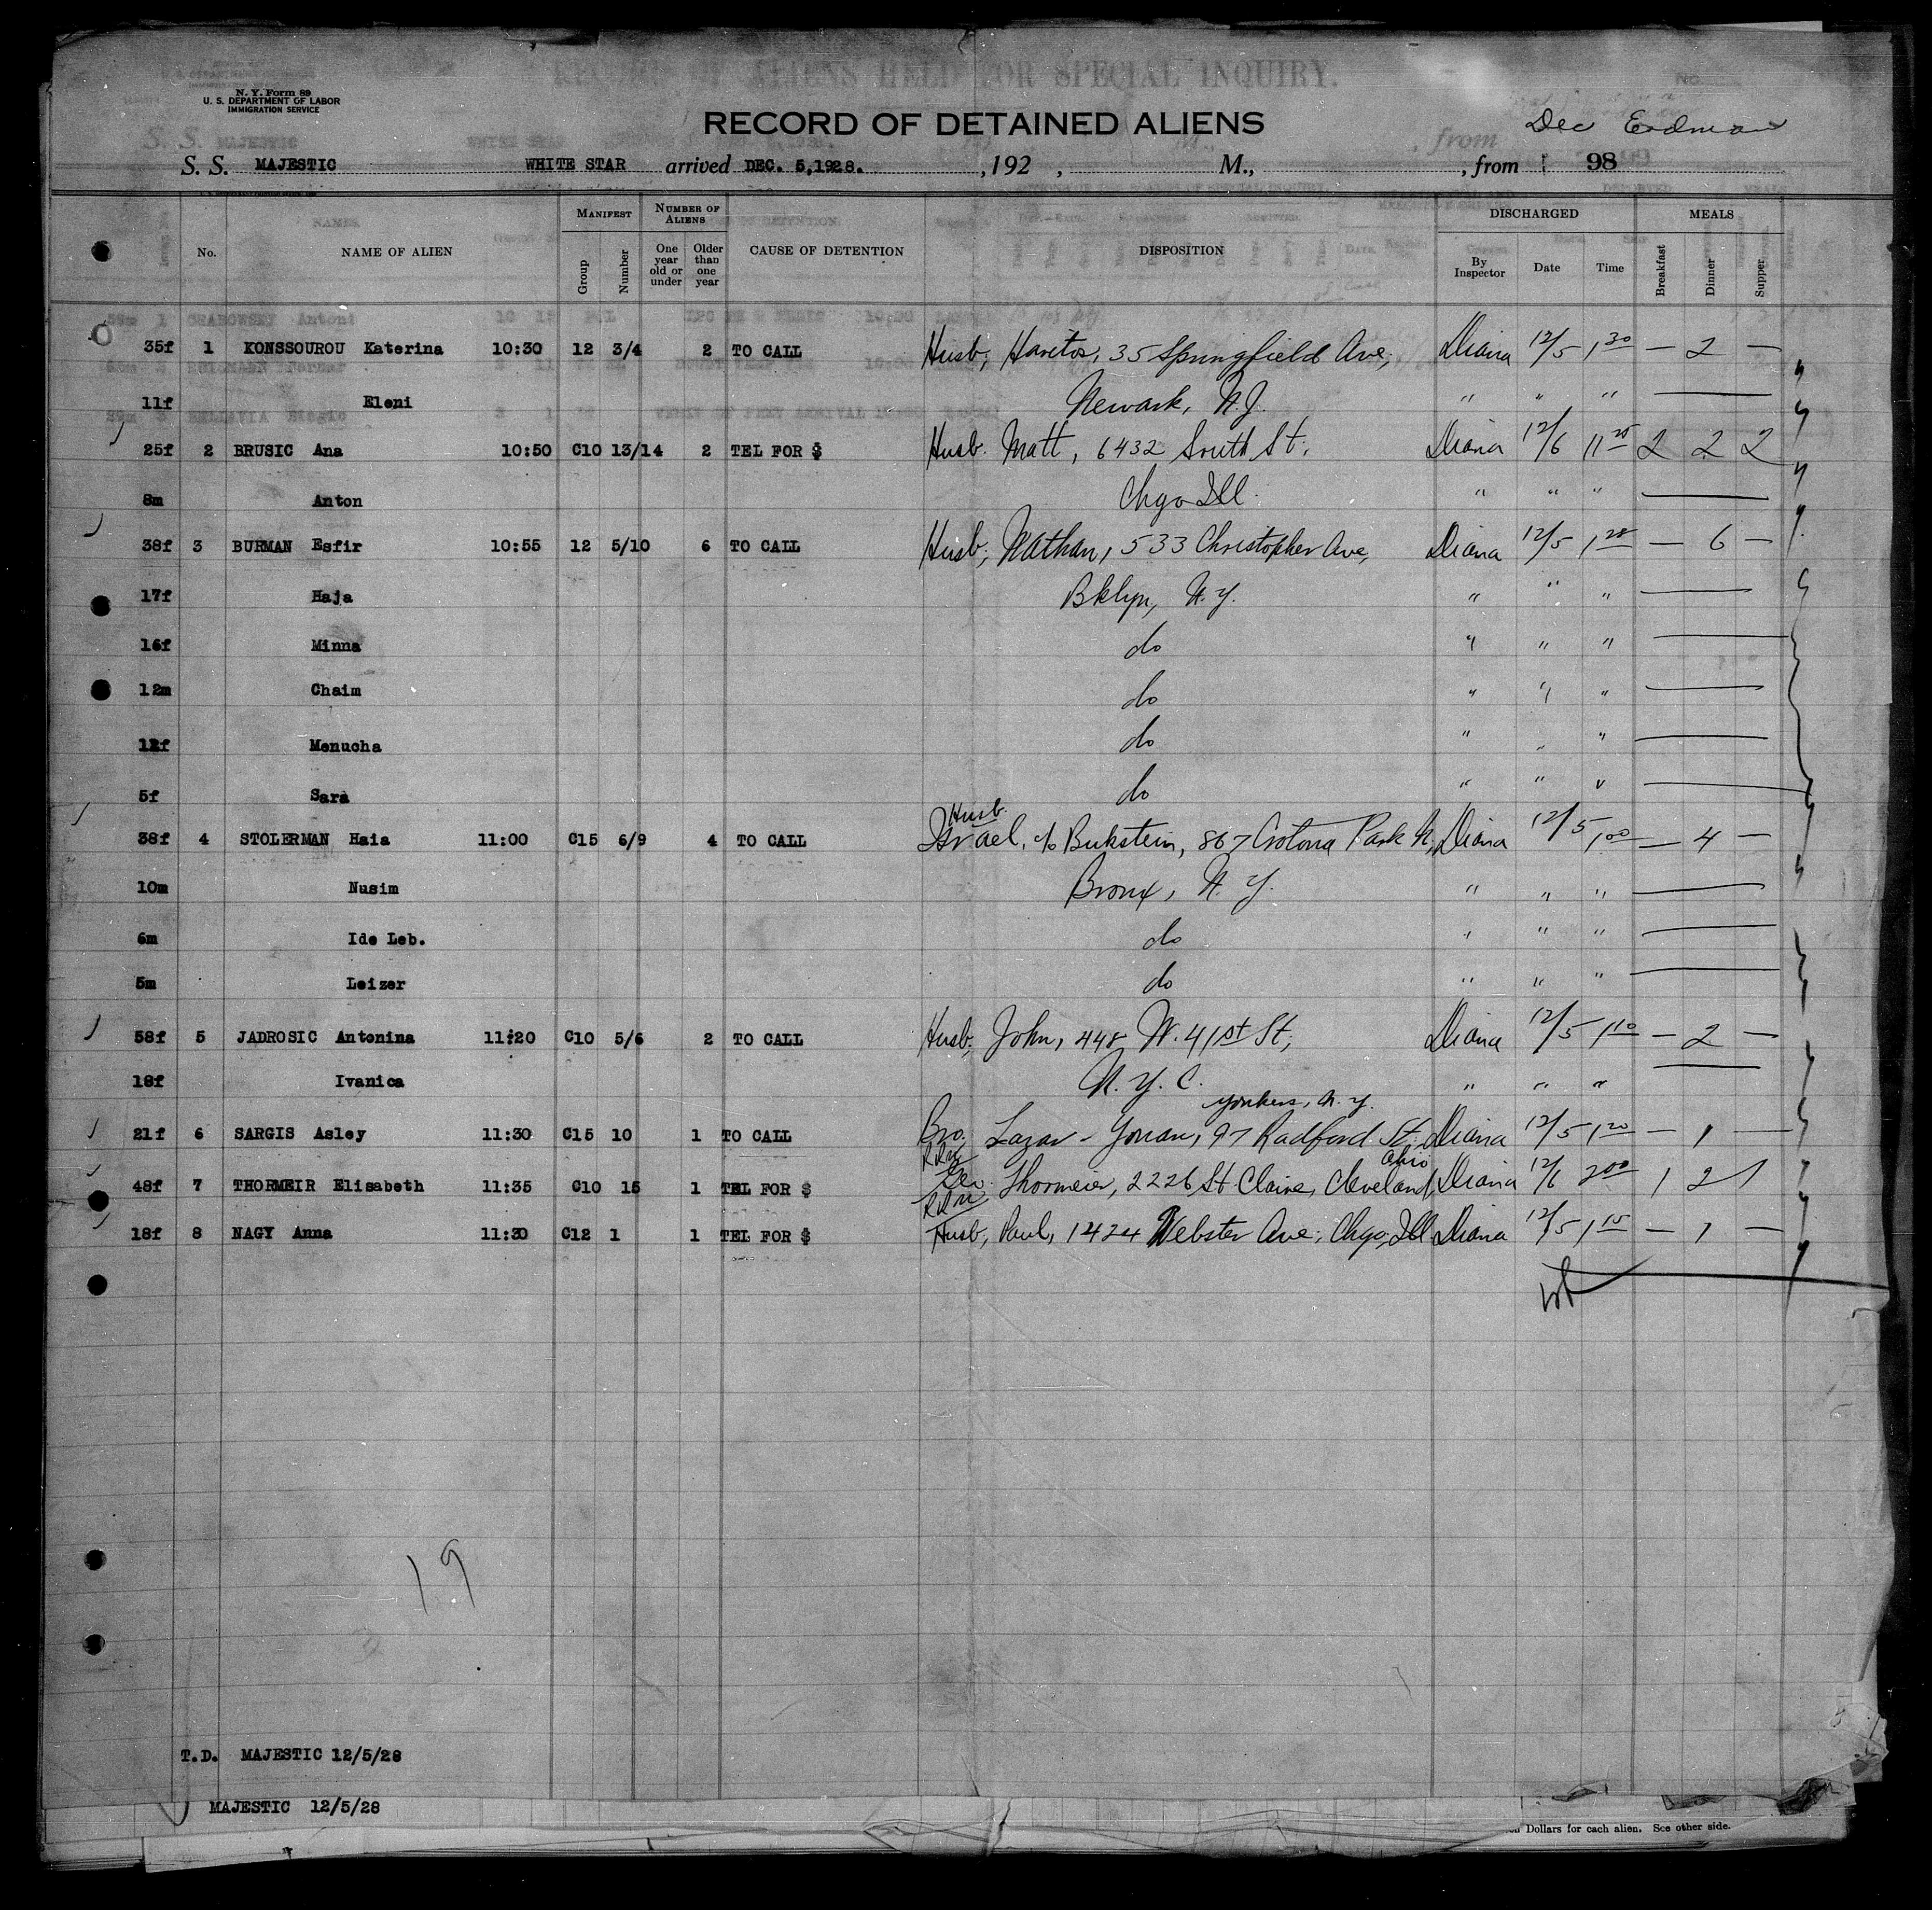 N. Y. Form 89
U. S. DEPARTMENT OF LABOR
IMMIGRATION SERVICE
RECORD OF ALIENS HELD FOR SPECIAL INQUIRY.
RECORD OF DETAINED ALIENS
Dec Erdman
S. S. MAJESTIC WHITE STAR arrived DEC. 5,1928. ,192 , M., , from 98
No. NAME OF ALIEN MANIFEST Group Number NUMBER OF ALIENS One year old or under Older than one year CAUSE OF DETENTION DISPOSITION DISCHARGED By Inspector Date Time MEALS Breakfast Dinner Supper
35f 1 KONSSOUROU Katerina 10:30 12 3/4 2 TO CALL Husb, Haritos, 35 Springfield Ave, Diana 12/5 1 30 — 2 —
11f Eleni Newark, N.J. " " " —
25f 2 BRUSIC Ana 10:50 C10 13/14 2 TEL FOR $ Husb. Matt, 6432 South St. Diana 12/6 11 25 2 2 2
8m Anton Chgo Ill. " " " —
38f 3 BURMAN Esfir 10:55 12 5/10 6 TO CALL Husb, Nathan, 533 Christopher Ave, Diana 12/5 1 28 — 6 —
17f Haja Bklyn, N.Y. " " " —
16f Minna do " " " —
12m Chaim do " " " —
12f Menucha do " " " —
5f Sara do " " " —
Husb.
38f 4 STOLERMAN Haia 11:00 C15 6/9 4 TO CALL Israel, c/o Bukstein, 867 Crotona Park N, Diana 12/5 1 00 — 4 —
10m Nusim Bronx, N.Y. " " " —
6m Ide Leb. do " " " —
5m Leizer do " " " —
58f 5 JADROSIC Antonina 11:20 C10 5/6 2 TO CALL Husb, John, 448 W. 41st St, Diana 12/5 1 10 — 2 —
18f Ivanica N.Y.C. " " " —
Yonkers, N.Y.
21f 6 SARGIS Asley 11:30 C15 10 1 TO CALL Bro. Lazar - Yonan, 97 Radford St. Diana 12/5 1 20 — 1 —
Ohio
48f 7 THORMEIR Elisabeth 11:35 C10 15 1 TEL FOR $ Geo. Thormeier, 2226 St Claire, Cleveland, Diana 12/6 2 00 1 2 1
18f 8 NAGY Anna 11:30 C12 1 1 TEL FOR $ Husb, Paul, 1424 Webster Ave, Chgo, Ill. Diana 12/5 1 15 — 1 —
19
T.D. MAJESTIC 12/5/28
MAJESTIC 12/5/28
Dollars for each alien. See other side.